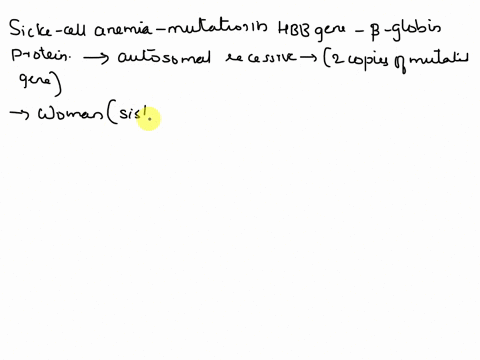 Sicke-cell anemia-mutation in HBB gene - β-globin
protein. → autosomal recessive → (2 copies of mutated
gene)
→ Woman (sist